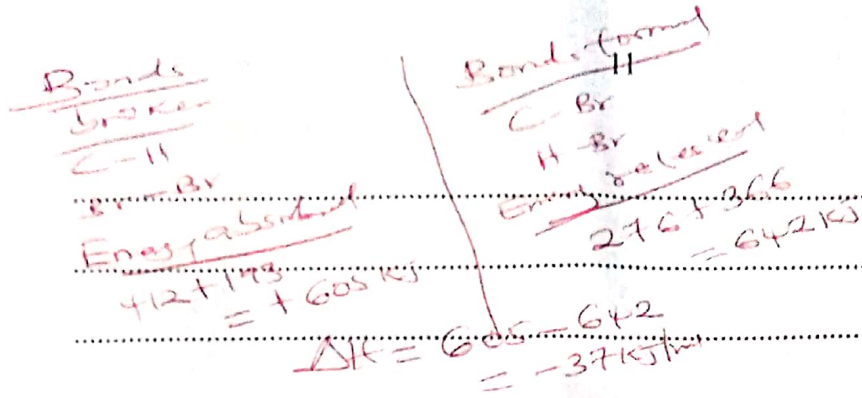 Bonds
broken
C-H
Br-Br
Energy absorbed
412+193
= + 605 kJ
Bonds formed
11
C-Br
H-Br
Energy released
276+366
= 642 kJ
ΔH = 605-642
= -37 kJ/mol